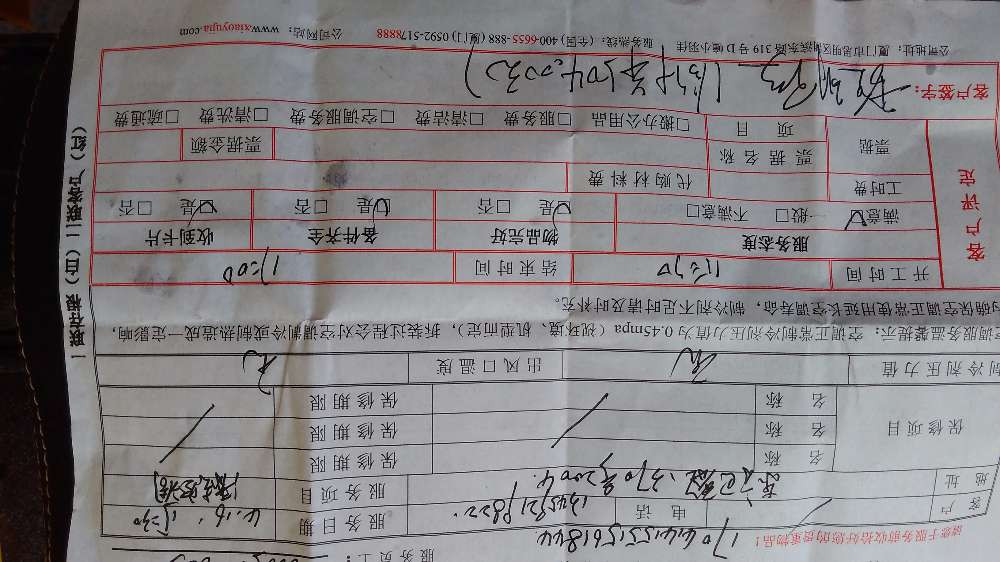 请您于服务前收拾好您的贵重物品!
服务员工:
客户 电话 服务日期 4.16. 15:30
地址 服务项目
保修项目 名称 保修期限
名称 保修期限
名称 保修期限
制冷剂压力值 出风口温度
调服务温馨提示:空调正常制冷剂压力值为0.45mpa(视环境、机型而定),拆装过程会对空调制冷或制热造成一定影响,
为确保空调正常使用延长空调寿命,制冷剂不足时请及时补充。
开工时间 15:30 结束时间 17:00
客户评定
服务态度 物品完好 备件齐全 收到卡片
满意☑ 一般□ 不满意□ ☑是 □否 ☑是 □否 ☑是 □否
工时费 代购材料费
票据 票据名称 票据金额
项目 □搬办公用品 □服务费 □清洁费 □空调服务费 □清洗费 □疏通费
客户签字:
公司地址:厦门市思明区湖滨东路319号D幢小羽佳 服务热线:(全国)400-6655-888 (厦门)0592-5178888 公司网站:www.xiaoyujia.com
一联存根(白)二联客户(红)